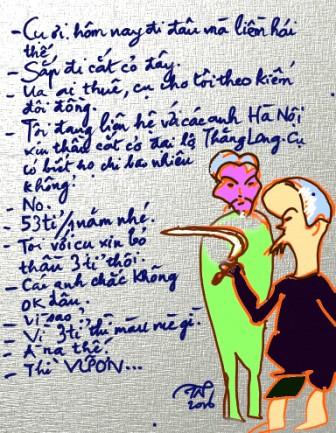 - Cụ ơi, hôm nay đi đâu mà liềm hái
thế?
- Sắp đi cắt cỏ đấy.
- Ua ai thuê, cụ cho tôi theo kiếm
đôi đồng.
- Tôi đang liên hệ với các anh Hà Nội
xin thầu cắt cỏ đại lộ Thăng Long. Cụ
có biết họ chi bao nhiêu
không?
- No.
- 53 tỉ/1 năm nhé.
- Tôi với cụ xin bỏ
thầu 3 tỉ thôi.
- Các anh chắc không
OK đâu.
- Vì sao?
- Vì 3 tỉ thì màu mè gì.
- À ra thế.
- Thì VƯỜN...
2016